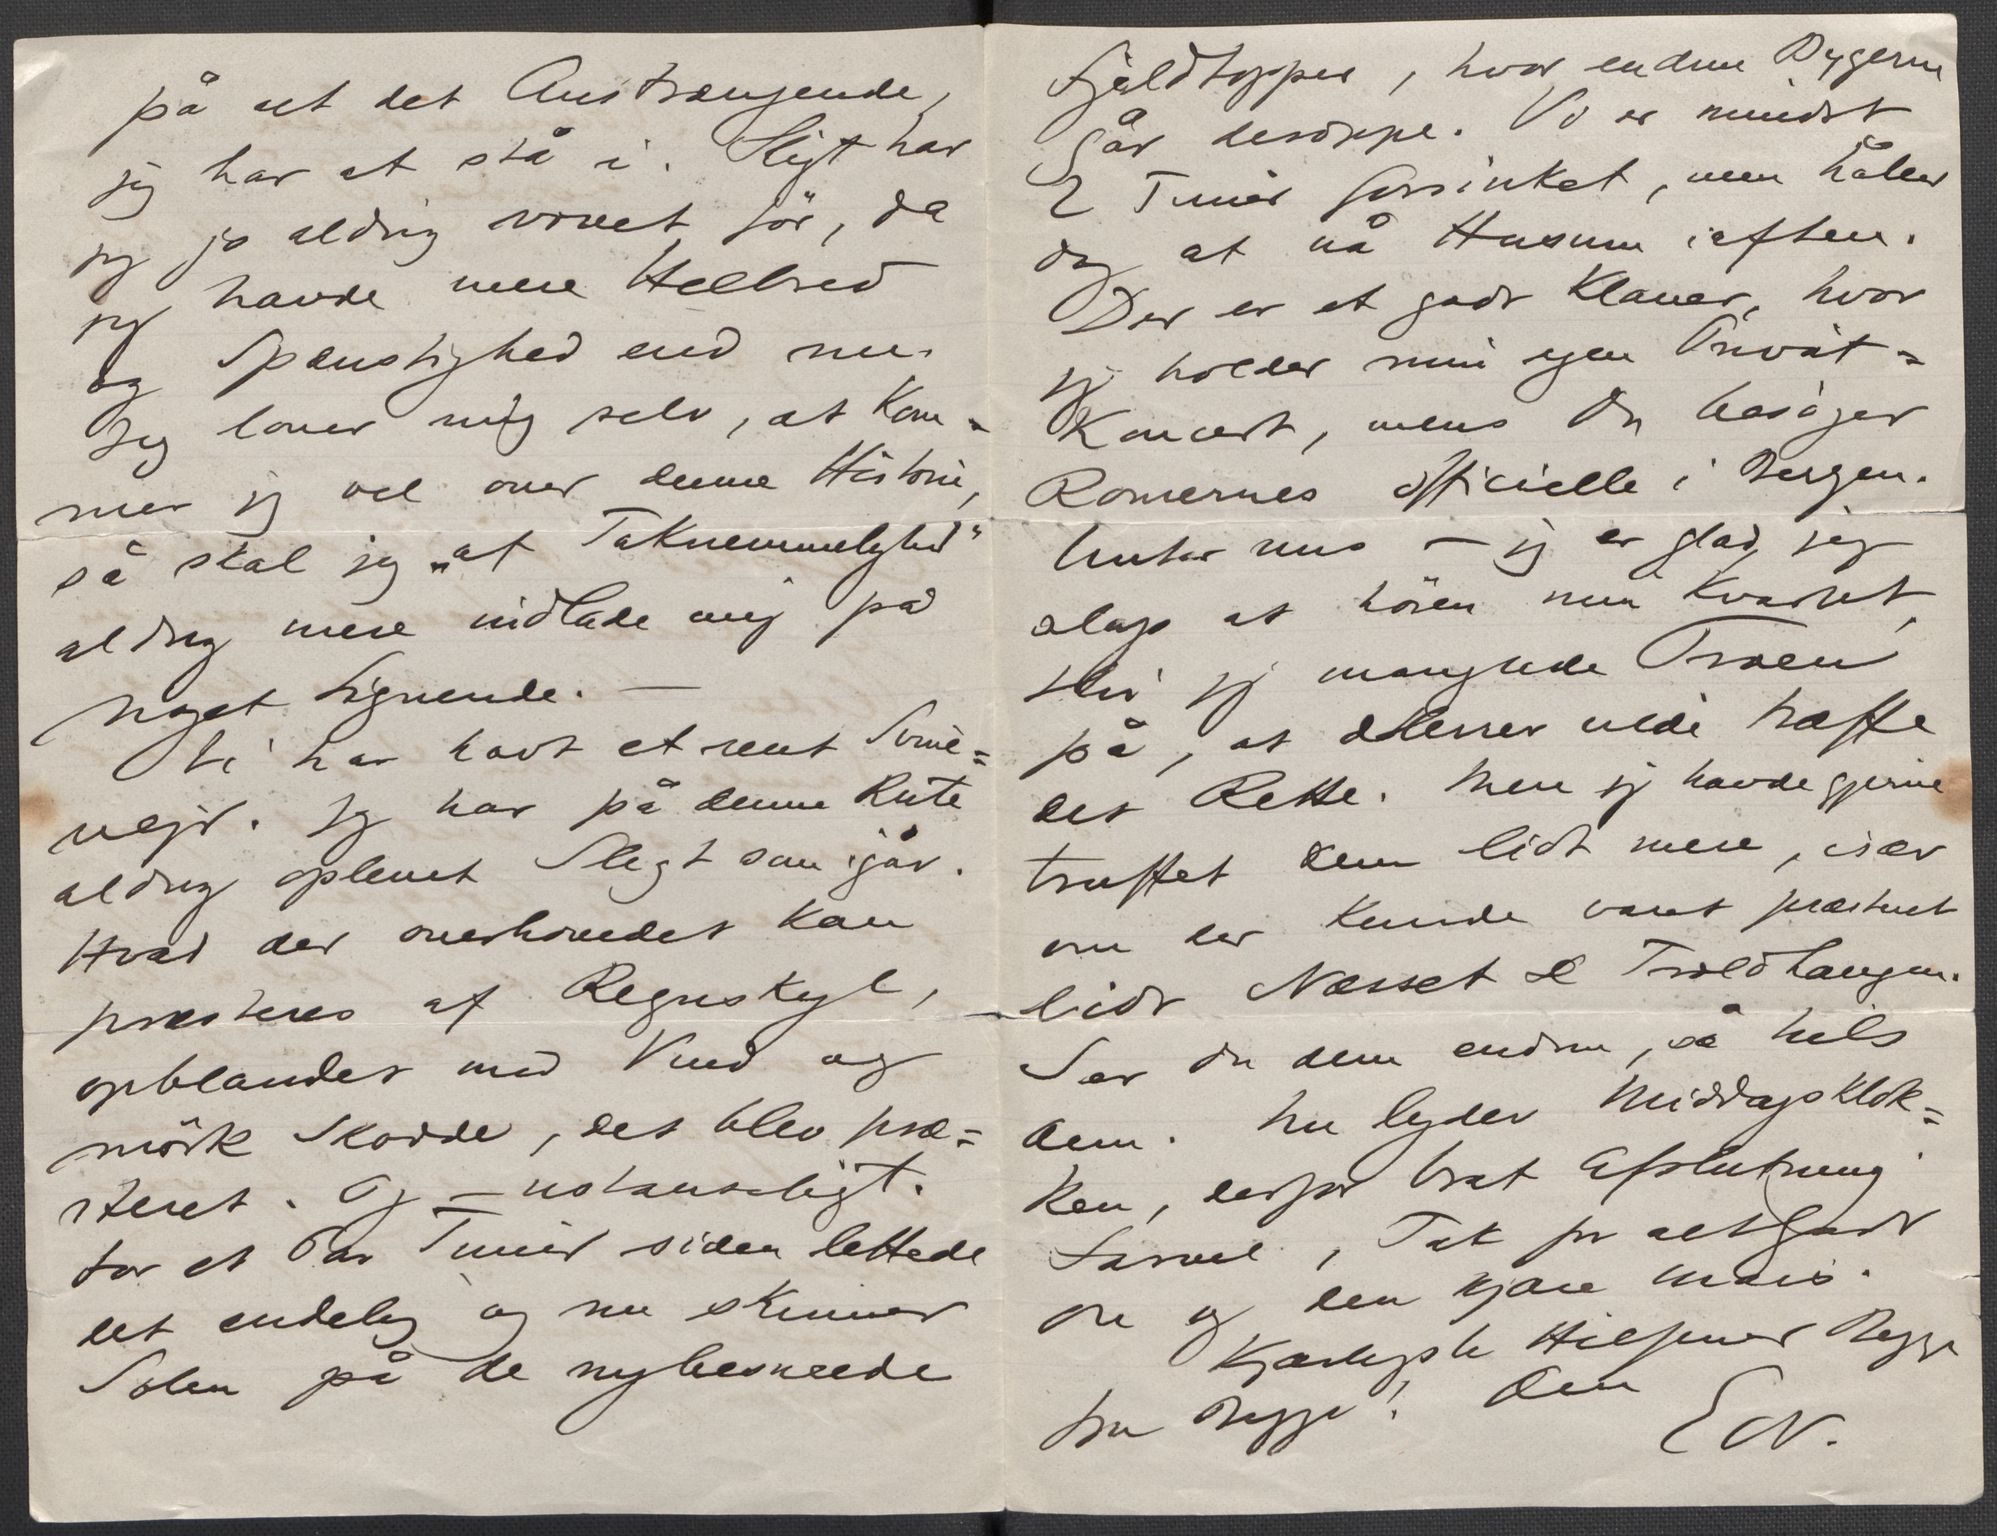 på alt det Anstrængende,
jeg har at stå i. Sligt har
jeg jo aldrig vovet för, da
jeg havde mere Helbred
og Spænstighed end nu.
Jeg lover mig selv, at kom=
mer jeg vel over denne Historie,
så skal jeg „af Taknemmelighed"
aldrig mere indlade mig på
noget Lignende. —
Vi har havt et rent
vejr. Jeg har på denne Rute
aldrig oplevet Sligt som igår.
Hvad der overhovedet kan
præsteres af Regnskyl,
opblandet med Vind og
mörk Skodde, det blev præ=
steret. Og — ustanseligt.
For et Par Timer siden lettede
det endelig og nu skinner
Solen på de nybesneede
Fjeldtopper, hvor endnu Bygerne
går deroppe. Vi er mindst
2 Timer forsinket, men håber
dog at nå Husum iaften.
Der er et godt Klaver, hvor
jeg holder min egen Privat=
Koncert, mens Du besöger
Romernes officielle i Bergen.
Unter uns — jeg er glad, jeg
slap at hören min Kvartet,
thi jeg manglede Troen
på, at d'Herrer vilde træffe
det Rette. Men jeg havde gjerne
truffet dem lidt mere, især
om der kunde været præsteret
lidt Næsset & Troldhaugen.
Ser du dem endnu, så hils
dem. Nu lyder Middagsklok=
ken, derfor brat Afslutning.
Farvel, Tak for alt Godt
Du og den kjære Marie.
Kjærligste Hilsener Begge
fra Begge! Din
Edv.